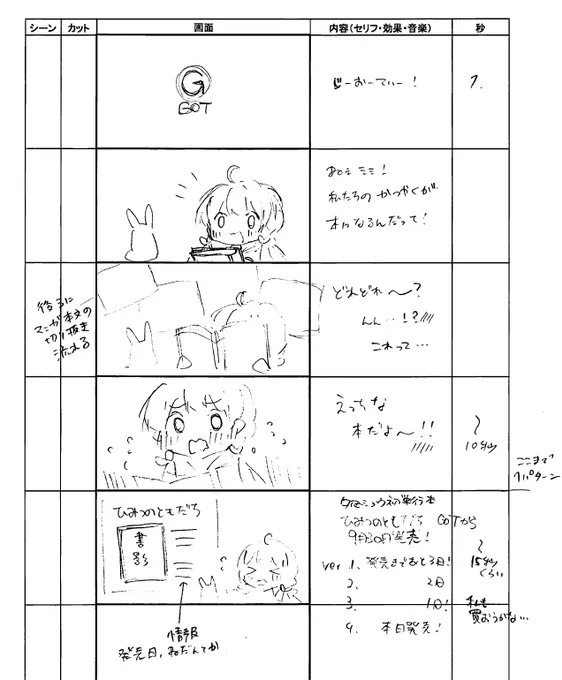 シーン カット 画面 内容(セリフ・効果・音楽) 秒
G
GOT
じーおーてぃー!
ねえ ミミ!
私たちの かつやくが
本になるんだって!
後ろに
マンガ本文の
切り抜き
流れる
どれどれ〜?
んん…!?
これって…
えっちな
本だよ〜!!
10秒
ここまで
1パターン
ひみつのともだち
書影
初単行本
ひみつのともだち GOTから
9月30日発売!
ver 1、発売まであと3日!
2. 2日
3. 1日!
4. 本日発売!
15秒
くらい
私も
買おうかな…
情報
発売日、ねだんとか